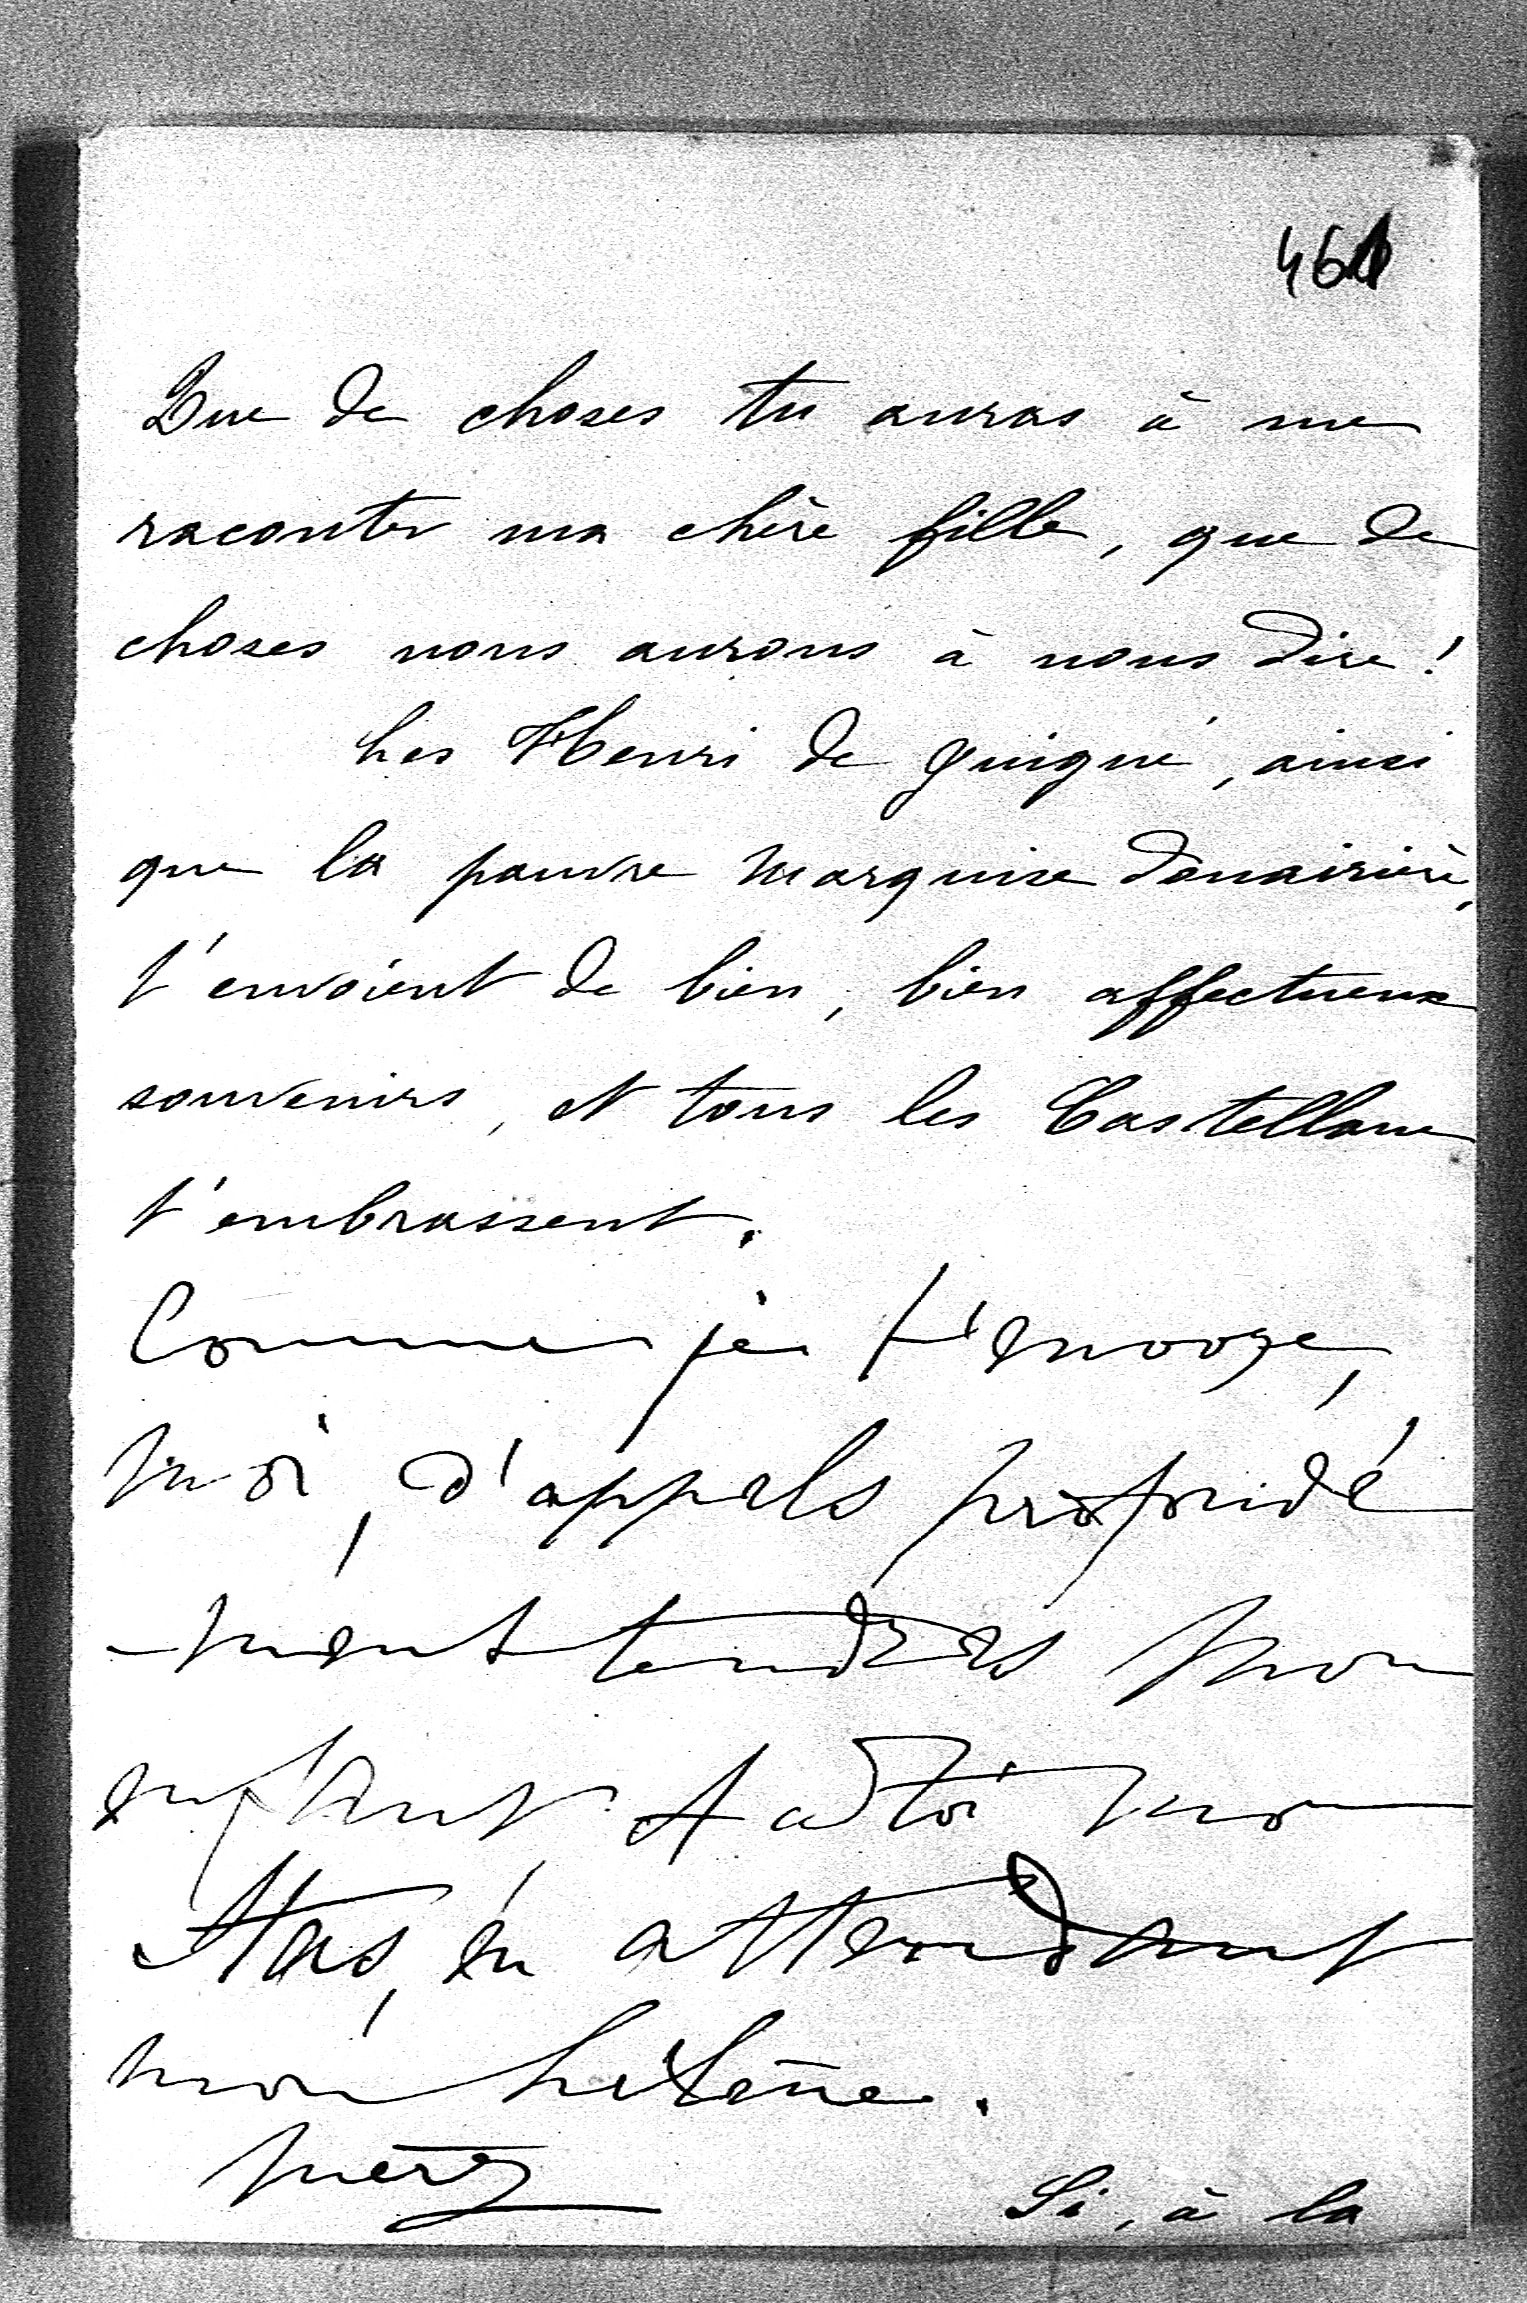 461
Que de choses tu auras à me
raconter ma chère fille, que de
choses nous aurons à nous dire!
Les Henri de Juigné, ainsi
que la pauvre marquise douairière,
t'envoient de bien, bien affectueux
souvenirs, et tous les Castellane
t'embrassent.
Comme je t'envoye,
moi, d'appels profondé
-ment tendres mon
enfant, et à toi mon
Stas, en attendant
mon hélène.
mère
Si, à la